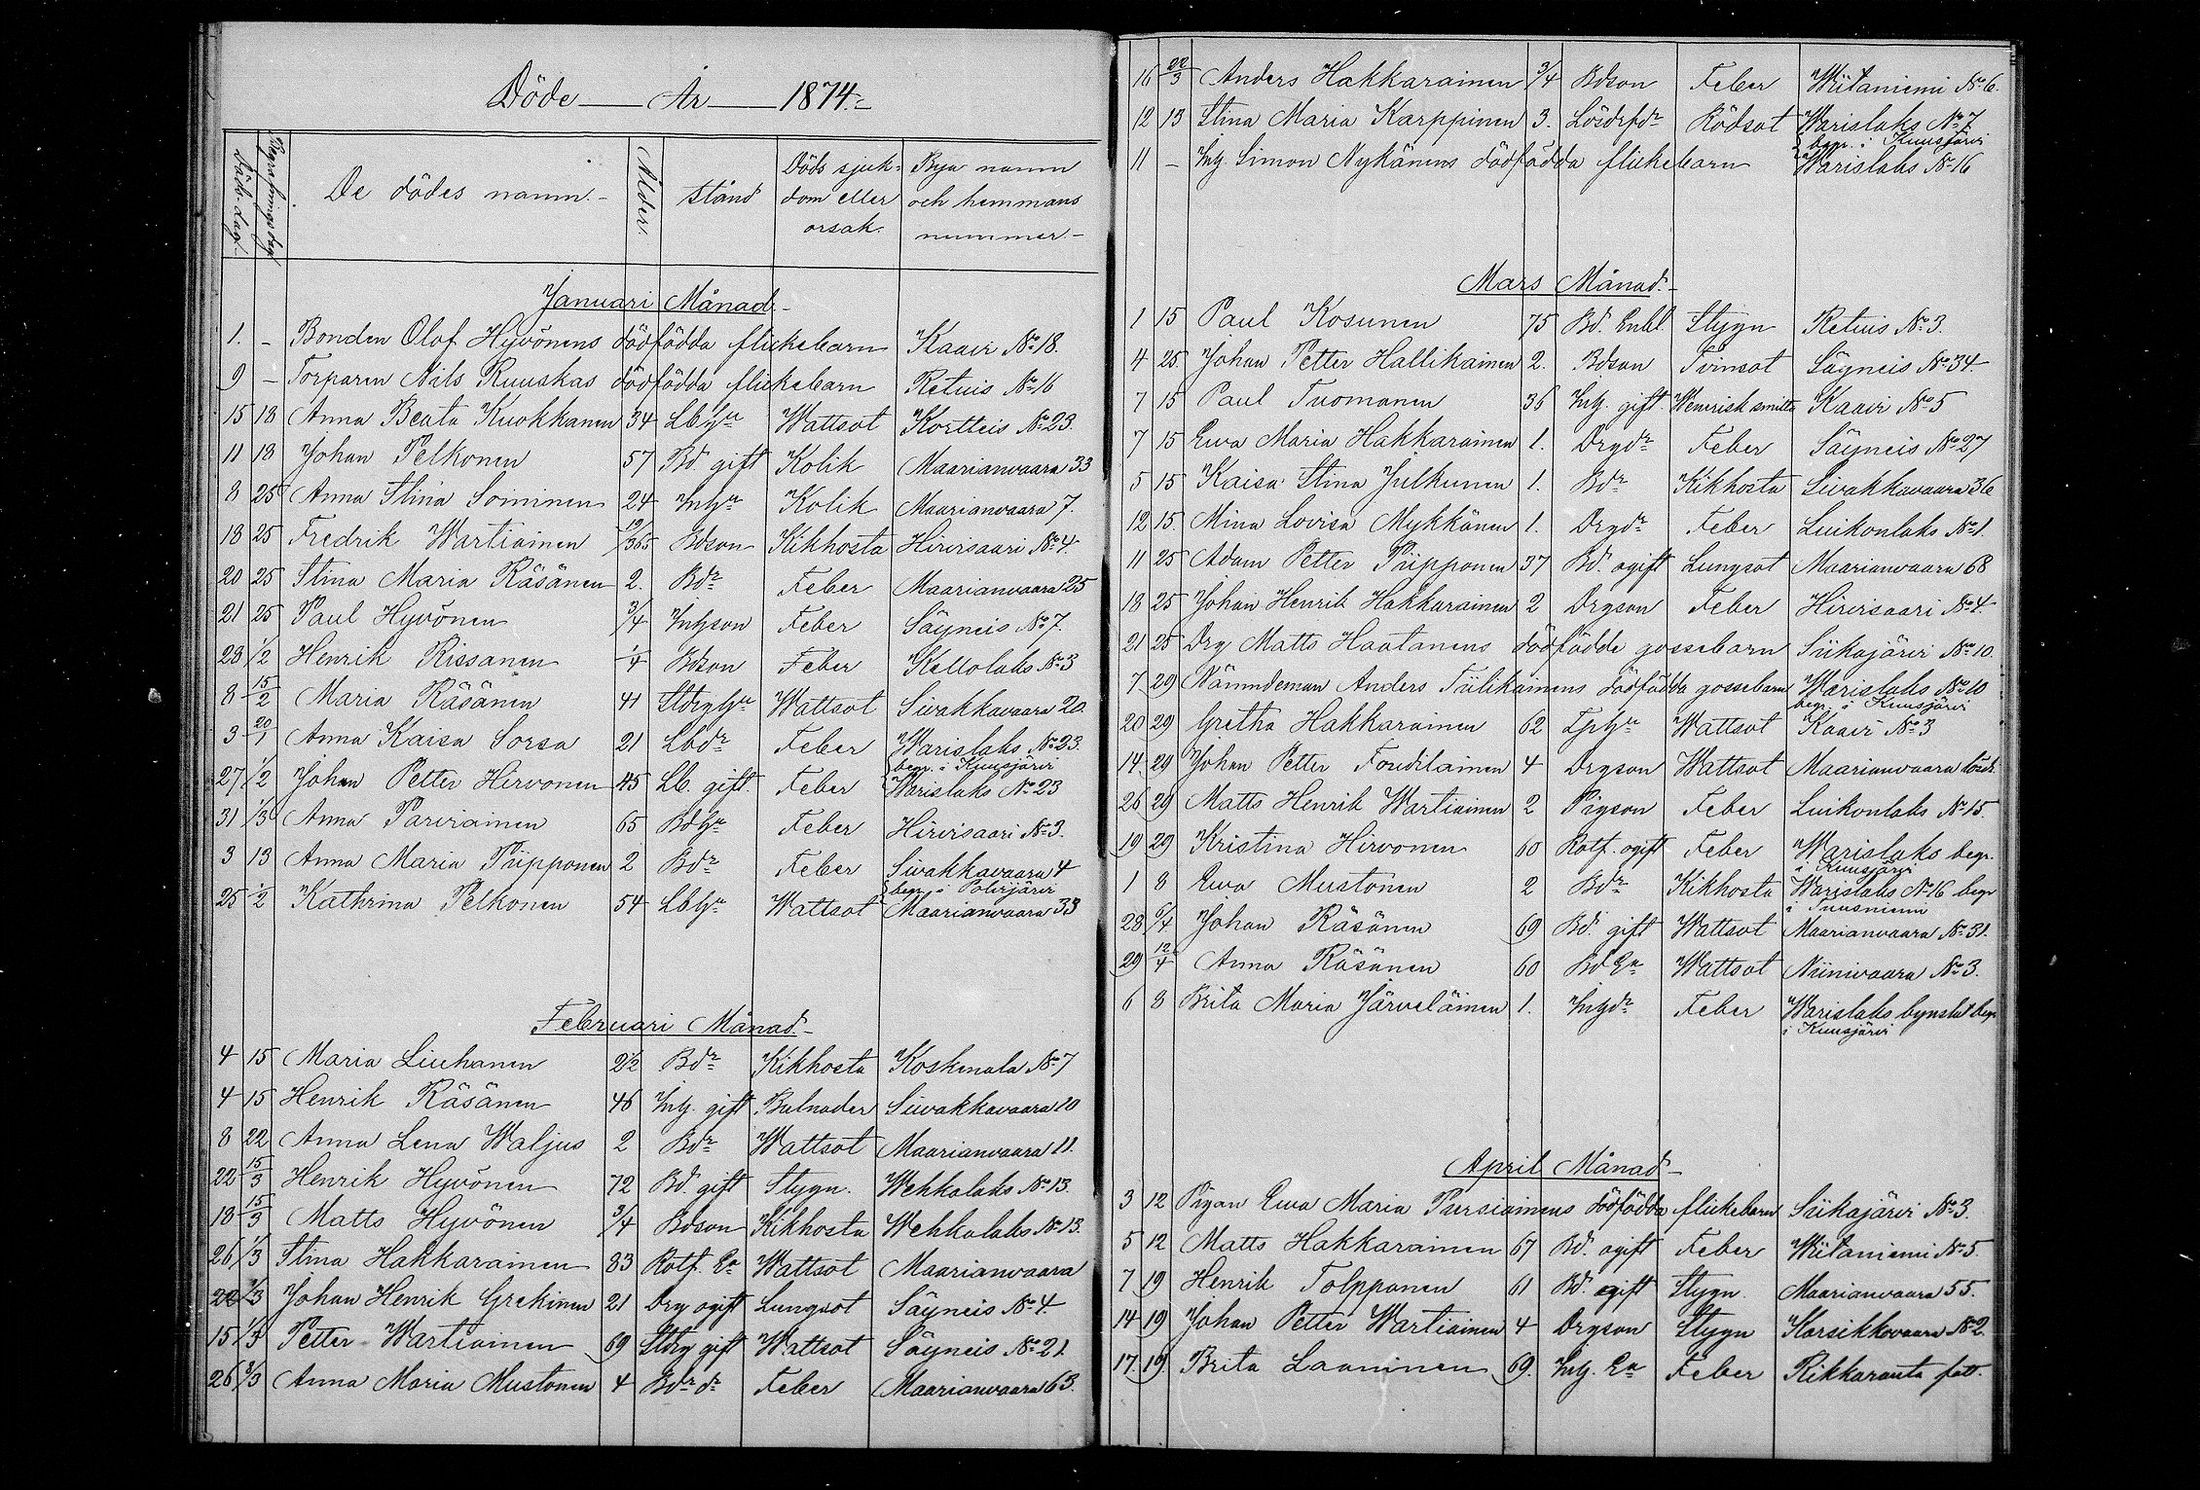 Döde — År — 1874.
Döds dag.
Begrafnings dag.
De dödes namn.
Ålder.
Stånd
Döds sjuk-
dom eller
orsak.
Bya namn
och hemmans
nummer.
Januari Månad.
1. – Bonden Olof Hyvönens dödfödda flickebarn Kaavi No 18.
9 – Torparen Nils Ruuskas dödfödda flickebarn Retuis No 16
15 18 Anna Beata Kuokkanen 34 Lbhu Wattsot Kortteis No 23.
11 18 Johan Pelkonen 57 Bd. gift Kolik Maarianvaara 33
8 25 Anna Stina Soininen 24 Inhu Kolik Maarianvaara 7.
18 25 Fredrik Wartiainen 19/365 Bdson Kikhosta Hirvisaari No 4.
20 25 Stina Maria Räsänen 2. Bdr Feber Maarianvaara 25
21 25 Paul Hyvönen 3/4 Inhson Feber Säyneis No 7.
28 1/2 Henrik Rissanen 1/4 Bdson Feber Kellolaks No 3
8 15/2 Maria Räsänen 41 Stdrghu Wattsot Sivakkavaara 20.
3 20/1 Anna Kaisa Sorsa 21 Lbdr Feber Warislaks No 23.
begr. i Kuusjärvi
27 1/2 Johan Petter Hirvonen 45 Lb. gift. Feber Warislaks No 23
31 1/3 Anna Parviainen 65 Bdhu Feber Hirvisaari No 3.
3 13 Anna Maria Piipponen 2 Bdr Feber Sivakkavaara 4
begr. i Polvijärvi
25 1/2 Kathrina Pelkonen 54 Lbhu Wattsot Maarianvaara 33
Februari Månad.
4 15 Maria Liuhanen 2 1/2 Bdr Kikhosta Koskenala No 7
4 15 Henrik Räsänen 46 Inh. gift Bulnader Sivakkavaara 20
8 22 Anna Lena Waljus 2 Bdr Wattsot Maarianvaara 11.
22 15/3 Henrik Hyvönen 72 Bd. gift Stygn. Wehkalaks No 13.
18 15/3 Matts Hyvönen 3/4 Bdson Kikhosta Wehkalaks No 13.
26 1/3 Stina Hakkarainen 83 Rotf. Ea Wattsot Maarianvaara
22 1/3 Johan Henrik Grekinen 21 Drg ogift Lungsot Säyneis No 4.
15 1/3 Petter Wartiainen 69 Stdrg gift Wattsot Säyneis No 21.
26 8/3 Anna Maria Mustonen 4 Bdr dr Feber Maarianvaara 63.
16 22/3 Anders Hakkarainen 3/4 Bdson Feber Wiitaniemi No 6.
12 13 Stina Maria Karppinen 3. Lösdrfdr Rödsot Warislaks No 7
begr. i Kuusjärvi
11 – Inh. Simon Nykänens dödfödda flickebarn Warislaks No 16
Mars Månad.
1 15 Paul Kosunen 75 Bd. Enkl. Stygn Retuis No 3.
4 25. Johan Petter Hallikainen 2. Bdson Tvinsot Säyneis No 34
7 15 Paul Tuomanen 36 Inh. gift. Wenerisk smitta Kaavi No 5
7 15 Ewa Maria Hakkarainen 1. Drgdr Feber Säyneis No 27
5 15 Kaisa Stina Julkunen 1. Bdr Kikhosta Sivakkavaara 36
12 15. Mina Lovisa Mykkänen 1. Drgdr Feber Luikonlaks No 1.
11 25 Adam Petter Piipponen 37 Bd. ogift Lungsot Maarianvaara 68
18 25 Johan Henrik Hakkarainen 2 Drgson Feber Hirvisaari No 4.
21 25 Drg Matts Haatanens dödfödde gossebarn Siikajärvi No 10.
7 29 Nämndeman Anders Tiilikainens dödfödda gossebarn Warislaks No 10
begr. i Kuusjärvi
20 29 Gretha Hakkarainen 62 Tphu Wattsot Kaavi No 3
14. 29 Johan Petter Foudilainen 4 Drgson Wattsot Maarianvaara lösdr.
26 29 Matts Henrik Wartiainen 2 Pigson Feber Luikonlaks No 15.
19 29 Kristina Hirvonen 60 Rotf. ogift Feber Warislaks begr.
i Kuusjärvi
1 8 Ewa Mustonen 2 Bdr Kikhosta Warislaks No 16 begr
i Tuusniemi
28 6/4 Johan Räsänen 69 Bd. gift Wattsot Maarianvaara No 31.
29 12/4 Anna Räsänen 60 Bd Ea Wattsot Niinivaara No 3.
6 8 Brita Maria Järveläinen 1. Inhdr Feber Warislaks begr.
i Kuusjärvi
April Månad
3 12 Pigan Ewa Maria Pursiainens dödfödda flickebarn Siikajärvi No 3.
5 12 Matts Hakkarainen 67 Bd. ogift Feber Wiitaniemi No 5.
7 19 Henrik Tolpponen 61 Bd. gift Stygn. Maarianvaara 55.
14 19 Johan Petter Wartiainen 4 Drgson Stygn Karsikkovaara No 2.
17. 19. Brita Laaninen 69. Inh. Ea Feber Rikkaranta fatt.